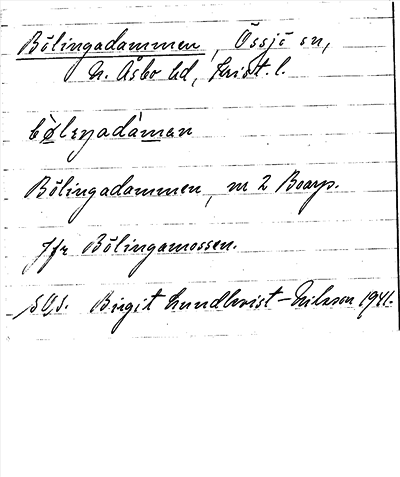 Bölingadammen, Össjö sn,
N. Åsbo hd, Krist. l.
bø̀lıŋadàmən
Bölingadammen, nr 2 Boarp.
Jfr Bölingamossen.
SOJ. Birgit Lundkvist-Nilsson 1941.